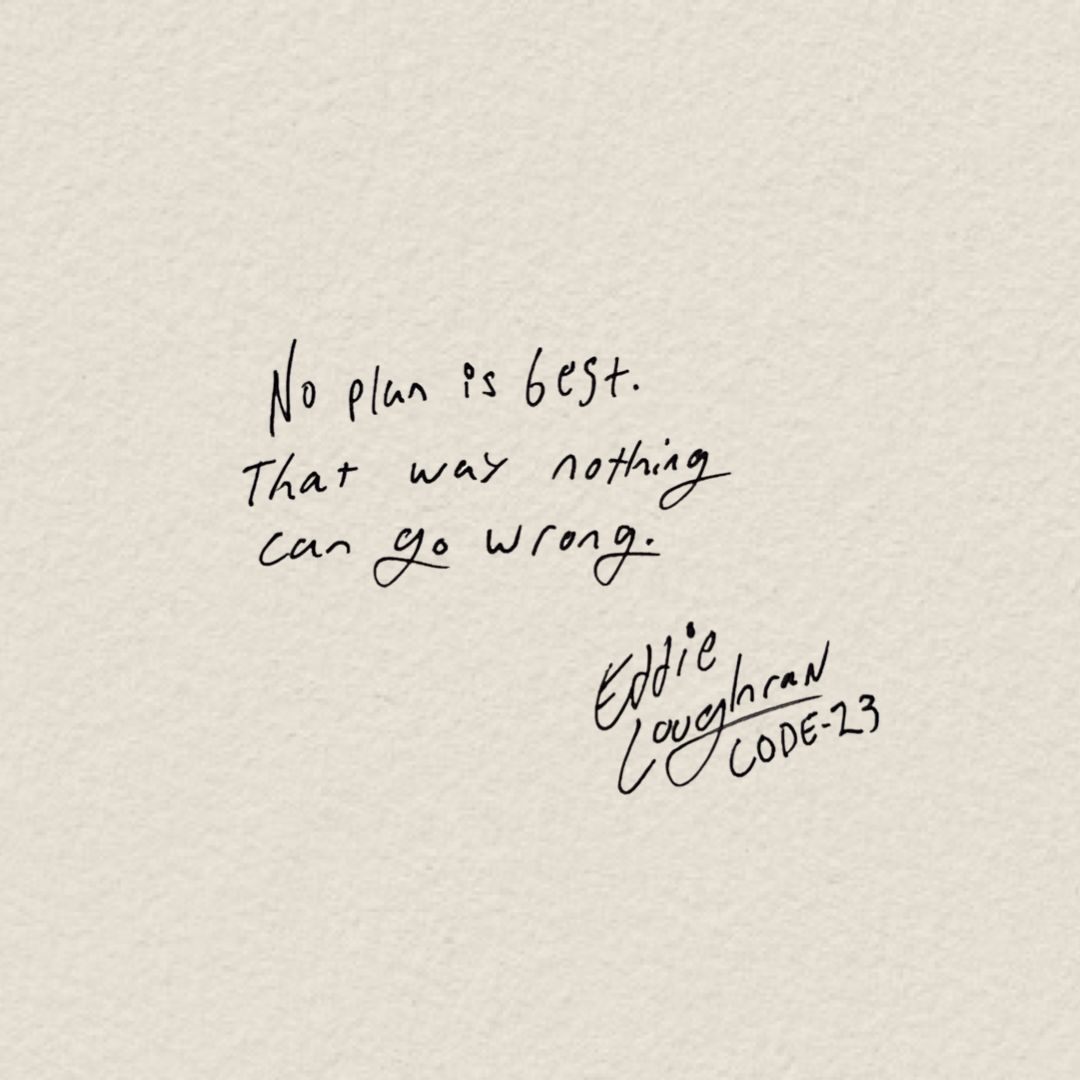 No plan is best.
That way nothing
can go wrong.
Eddie
Loughran
CODE-23